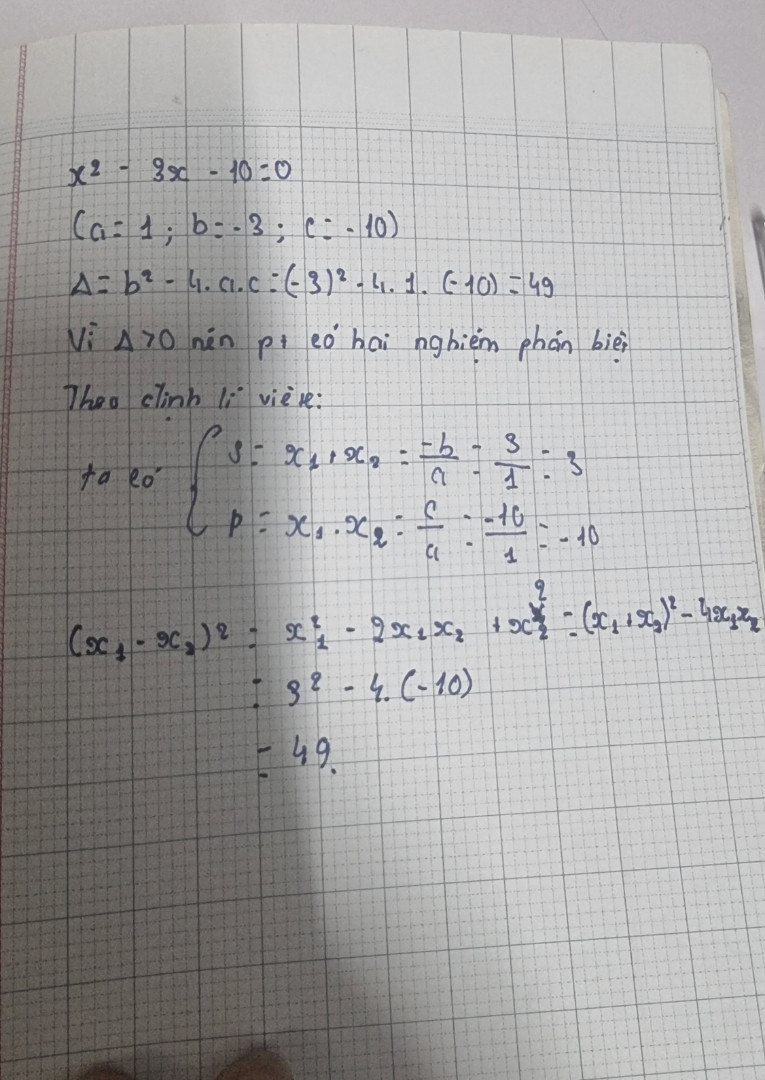 x² - 3x - 10 = 0
(a = 1 ; b = -3 ; c = -10)
Δ = b² - 4.a.c = (-3)² - 4.1.(-10) = 49
Vì Δ > 0 nên pt có hai nghiệm phân biệt
Theo định lí viète:
ta có { S = x₁ + x₂ = -b/a = 3/1 = 3
P = x₁ . x₂ = c/a = -10/1 = -10
(x₁ - x₂)² = x₁² - 2x₁x₂ + x₂² = (x₁ + x₂)² - 4x₁x₂
= 3² - 4.(-10)
= 49.